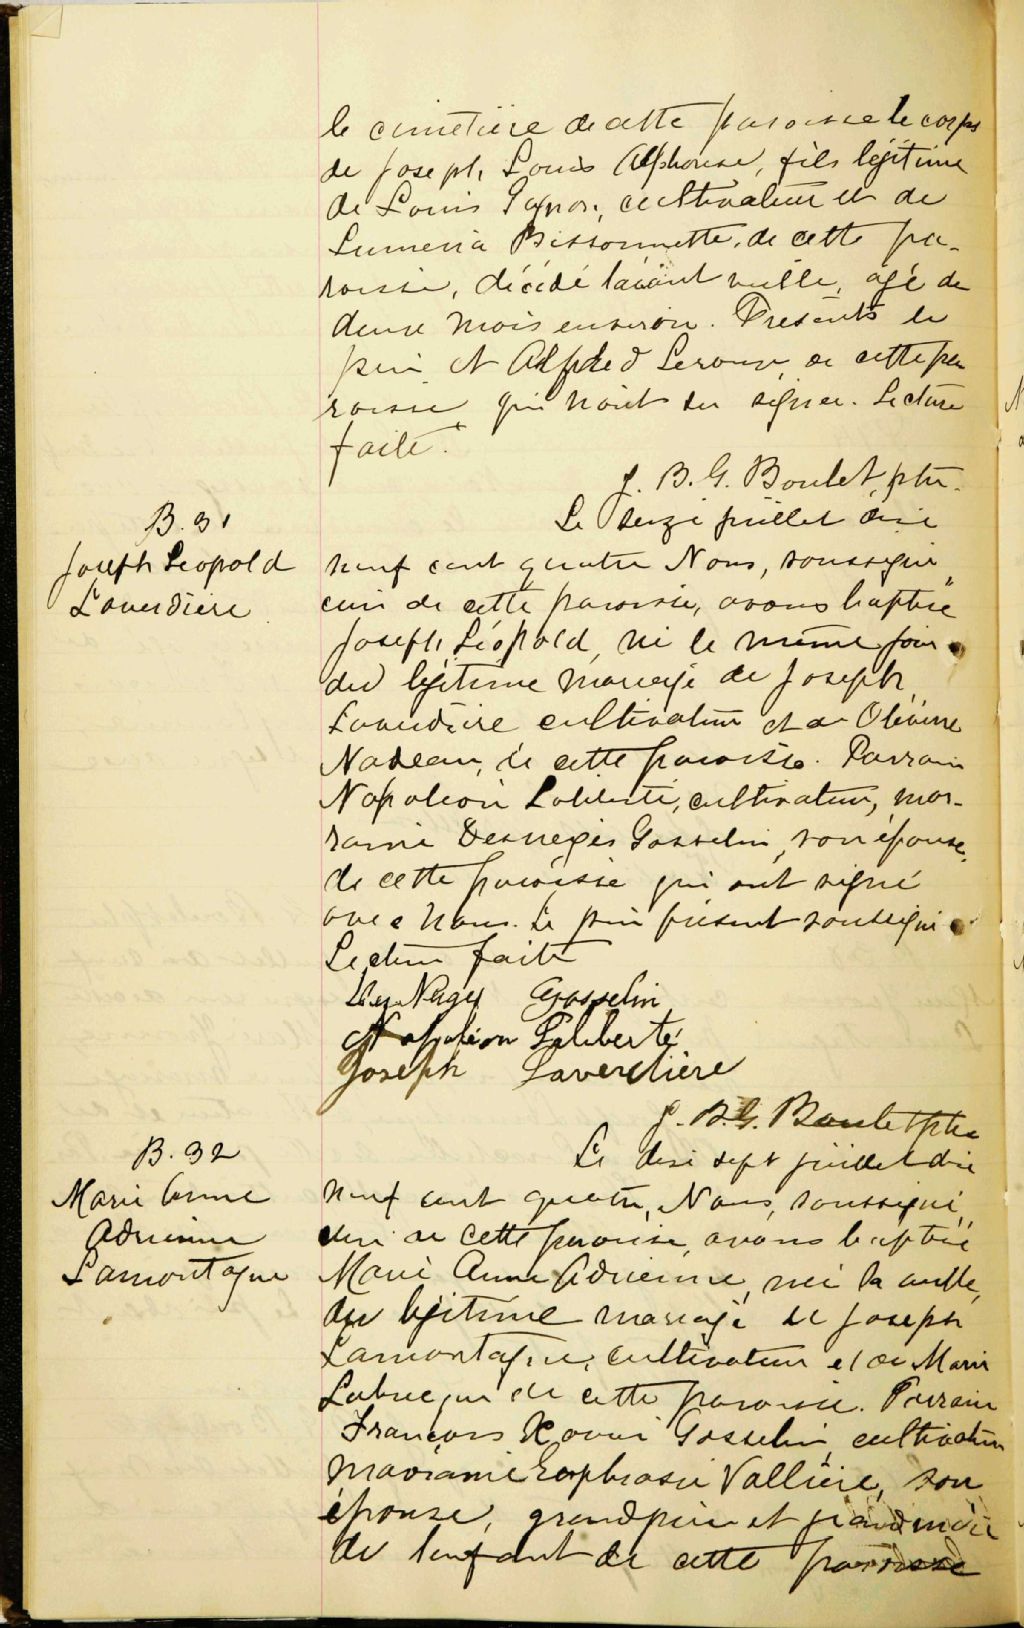 le cimetière de cette paroisse le corps
de Joseph Louis Alphonse, fils légitime
de Louis cultivateur et de
Lumena Bissonnette, de cette pa-
roisse, décédé l'avant veille, agé de
deux mois environ. Presents le
père et Alfred Leroux, de cette pa
roisse qui n'ont su signer. Lecture
faite.
J. B. G. Boulet, ptre.
Le seize juillet dix
B. 31
Joseph Leopold
Laverdière
neuf cent quatre Nous, soussigné
curé de cette paroisse, avons baptisé
Joseph Léopold, né le même jour
du légitime mariage de Joseph
Laverdière cultivateur et de Olévine
Nadeau, de cette paroisse. Parrain
Napoléon Laliberté, cultivateur, mar-
raine Desneges Gosselin, son épouse,
de cette paroisse qui ont signé
avec Nous. Le père présent soussigné
Lecture faite
Gosselin
Napoléon Laliberté
Joseph Laverdière
J. B. G. Boulet ptre
Le dix sept juillet dix
B. 32
Marie Anne
Adrienne
Lamontagne
neuf cent quatre, Nous, soussigné,
curé de cette paroisse, avons baptisé
Marie Anne Adrienne, née la veille,
du légitime mariage de Joseph
Lamontagne, cultivateur et de Marie
Labrecque de cette paroisse. Parrain
François Xavier Gosselin, cultivateur
marraine Euphrasie Vallière, son
épouse, grand père et grand mère
de l'enfant de cette paroisse